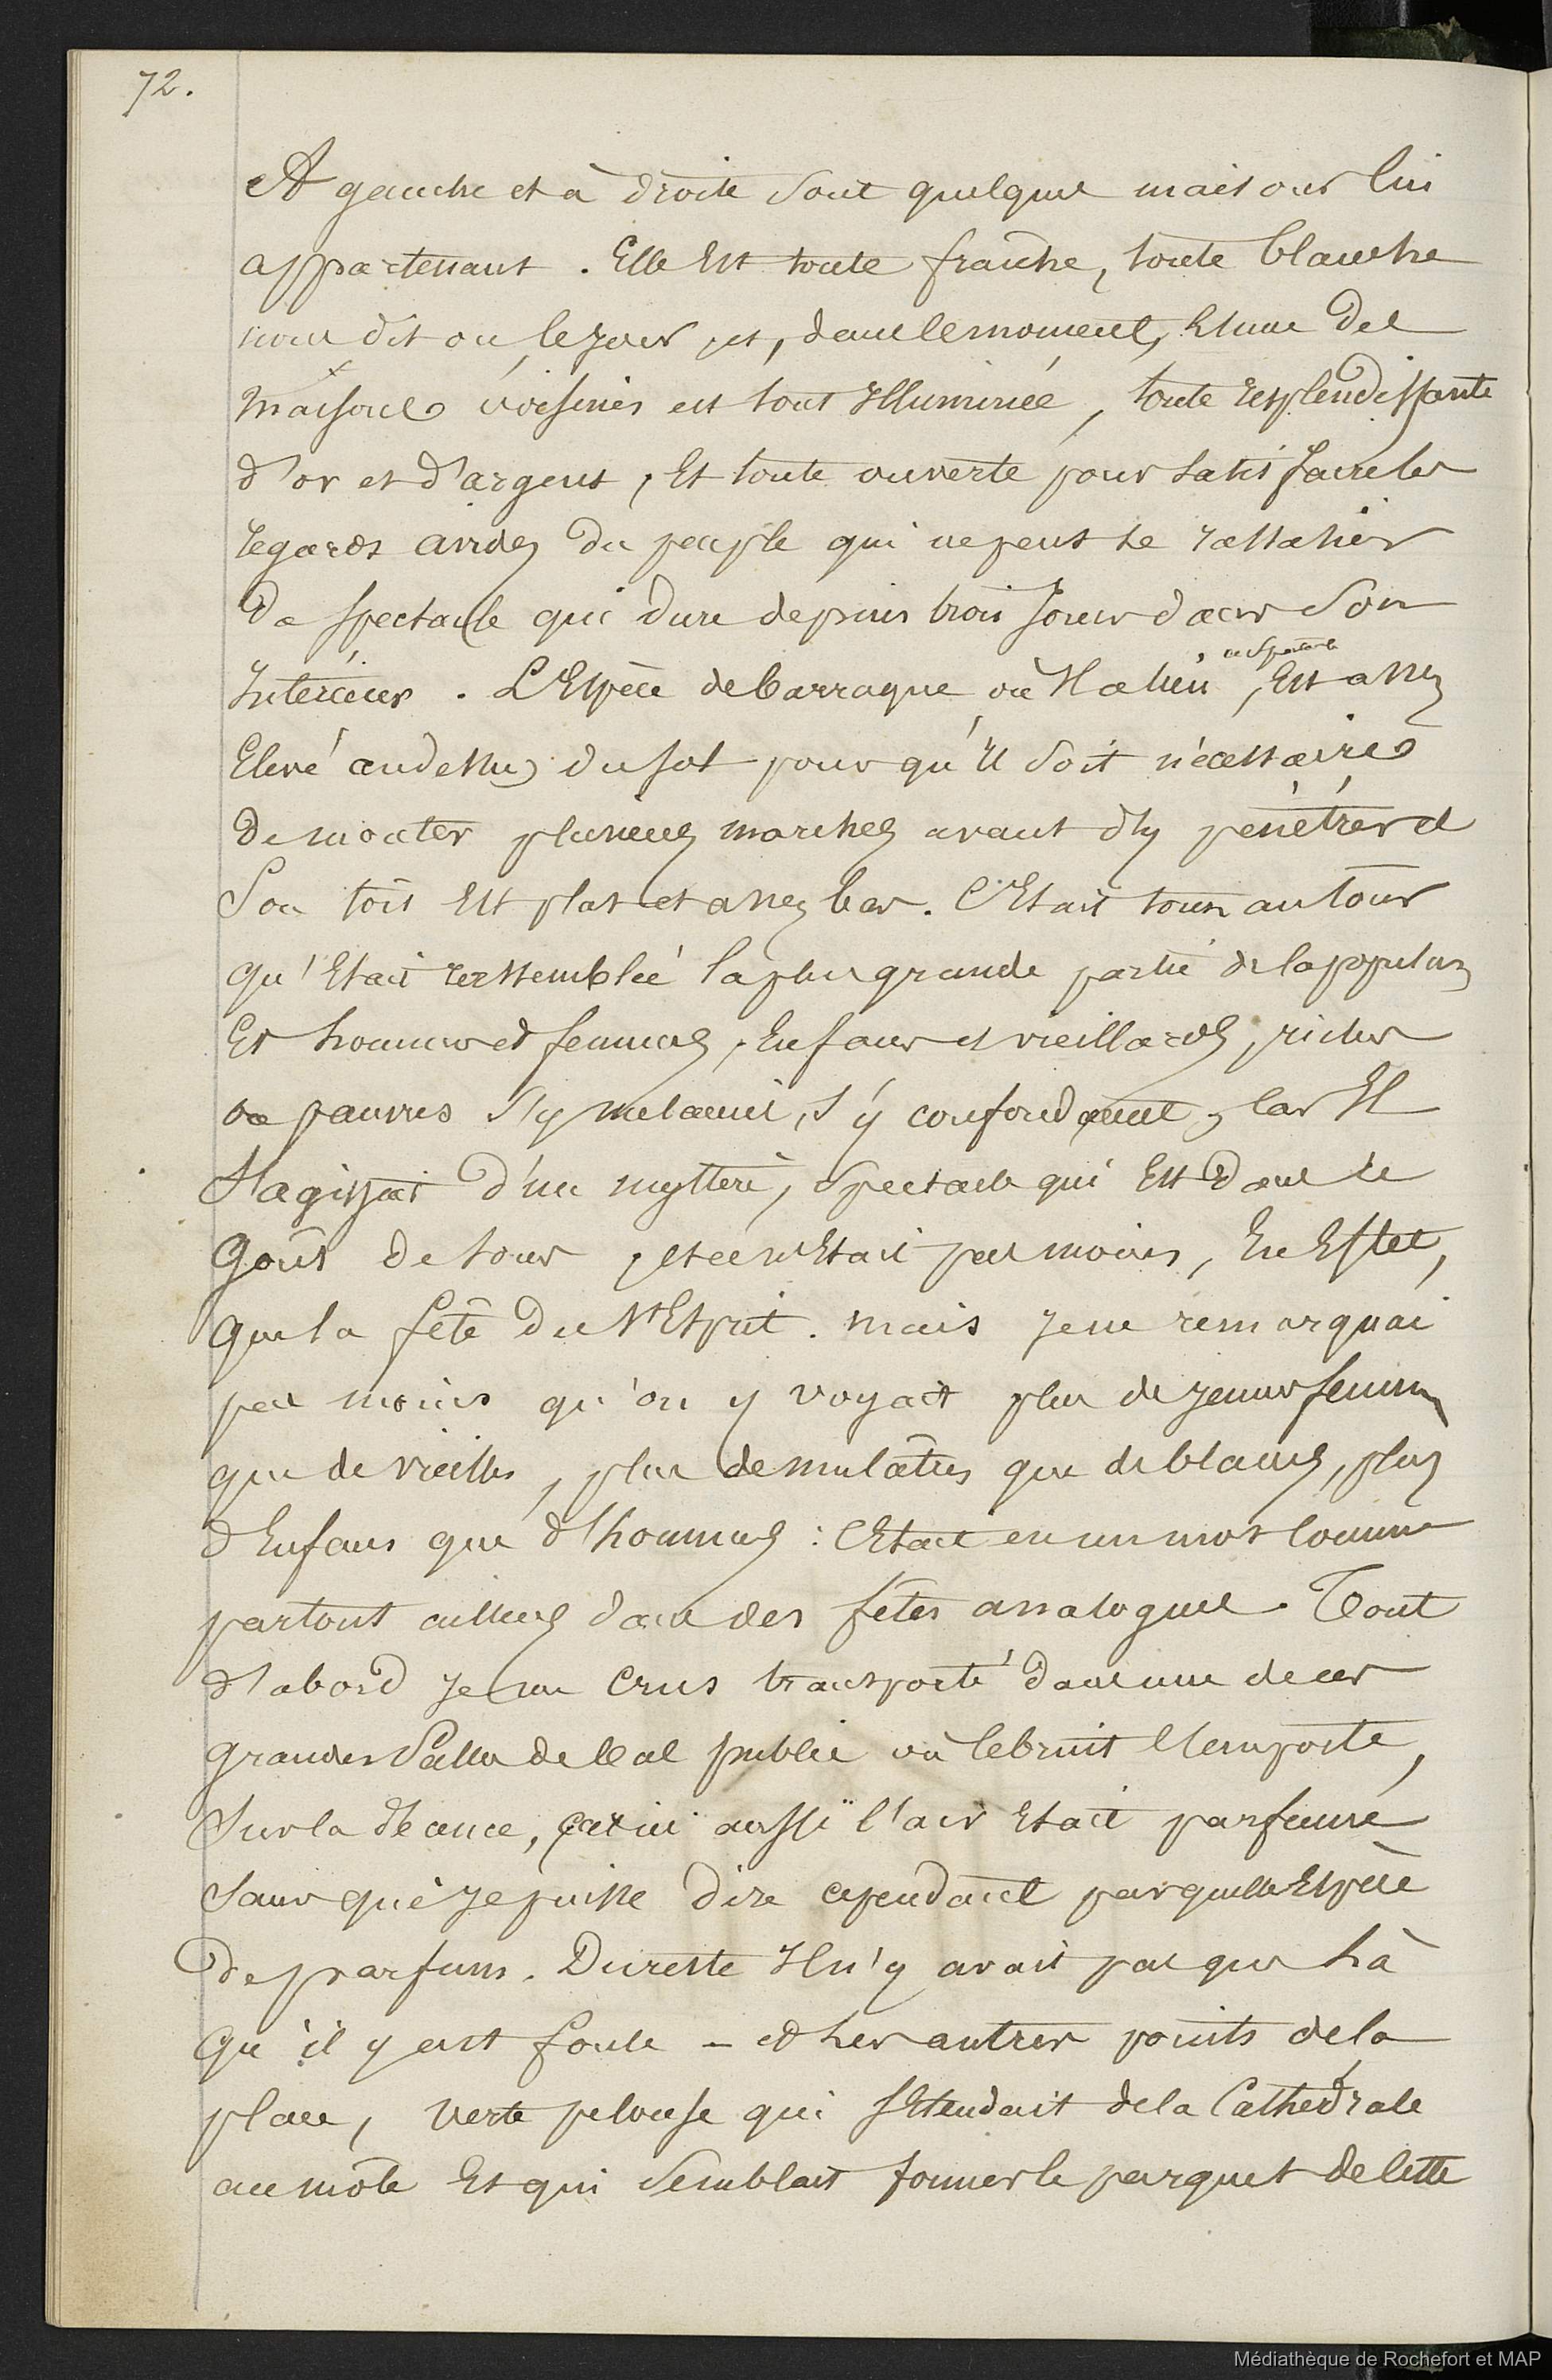 72.
A gauche et à droite sont quelques maisons lui
appartenant. Elle Est toute fraiche, toute blanche
nous dit on le jour et, dans le moment, Et une des
maisons voisines est tout Illuminée, toute resplendissante
d'or et d'argent, Et toute ouverte pour satisfaire les
regards avides du peuple qui ne peut se rassasier
du spectacle qui dure depuis trois jours dans son
Intérieur. L'Espèce de barraque où Il a lieu, ce spectacle, Est assez
Elevé audessus du sol pour qu'Il soit nécessaire
de monter plusieurs marches avant d'y pénétrer et
son toit Est plat et assez bas. C'Etait tout autour
qu'Etait rassemblée la plus grande partie de la popula
Et hommes et femmes, Enfans et vieillards, riches
ou pauvres s'y melaient, s'y confondaient, car Il
s'agissait d'un mystère, spectacle qui Est dans le
goût de tous, et ce n'Etait pas moins, En Effet,
que la fête du St Esprit. mais je ne remarquai
pas moins qu'on y voyait plus de jeunes femmes
que de vieilles, plus de mulâtres que de blancs, plus
d'Enfans que d'hommes : C'Etait en un mot comme
partout ailleurs dans des fêtes analogues. Tout
d'abord je me crus transporté dans une de ces
grandes Salles de bal public où le bruit l'emporte,
sur la décence, car ici aussi l'air Etait parfumé
sans que je puisse dire cependant par quelle Espèce
de parfum. Du reste Il n'y avait pas que là
qu'il y eut foule – et les autres points de la
place, verte pelouse qui s'Etendait de la Cathédrale
au môle Et qui semblait former le parquet de cette
Médiathèque de Rochefort et MAP